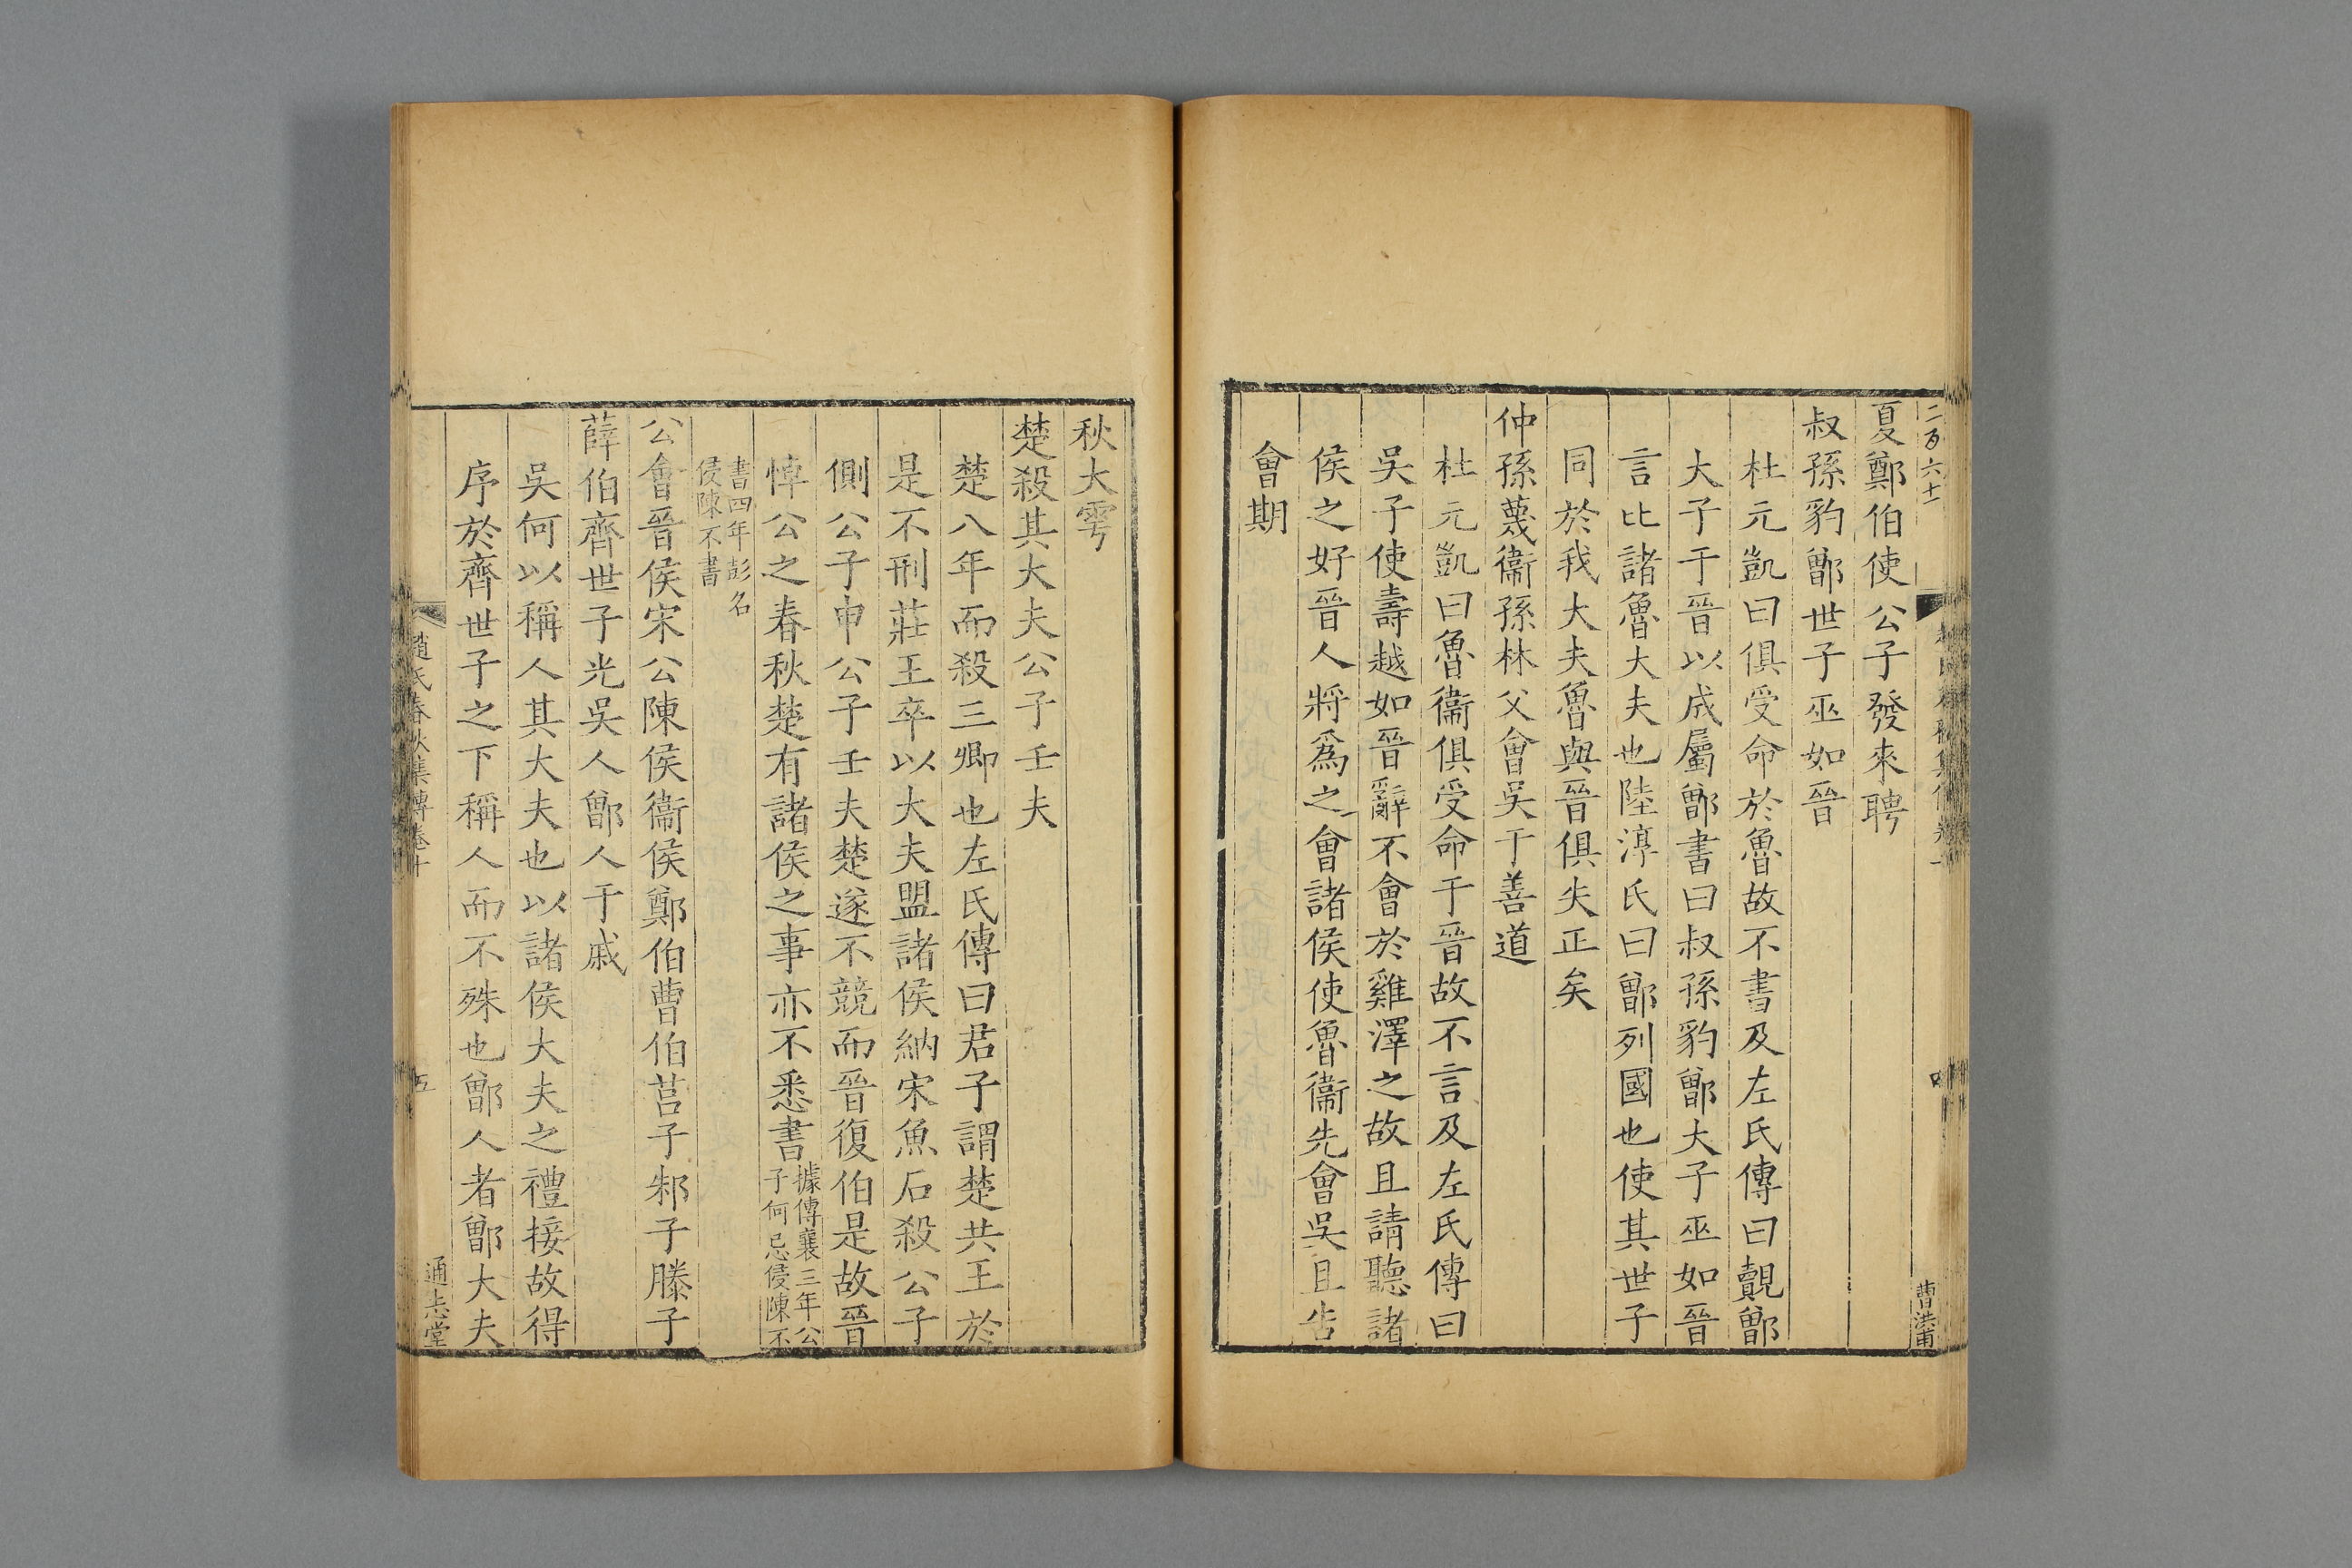 二百六十
曹洪甫
夏鄭伯使公子發來聘
叔孫豹鄫世子巫如晉
杜元凱曰俱受命於魯故不書及左氏傳曰覿鄫
大子于晉以成屬鄫書曰叔孫豹鄫大子巫如晉
言比諸魯大夫也陸淳氏曰鄫列國也使其世子
同於我大夫魯與晉俱失正矣
仲孫蔑衞孫林父會吳于善道
杜元凱曰魯衞俱受命于晉故不言及左氏傳曰
吳子使壽越如晉辭不會於雞澤之故且請聽諸
侯之好晉人將爲之會諸侯使魯衞先會吳且告
會期
秋大雩
楚殺其大夫公子壬夫
楚八年而殺三卿也左氏傳曰君子謂楚共王於
是不刑莊王卒以大夫盟諸侯納宋魚石殺公子
側公子申公子壬夫楚遂不競而晉復伯是故晉
悼公之春秋楚有諸侯之事亦不悉書據傳襄三年公
子何忌侵陳不
書四年彭名
侵陳不書
公會晉侯宋公陳侯衞侯鄭伯曹伯莒子邾子滕子
薛伯齊世子光吳人鄫人于戚
吳何以稱人其大夫也以諸侯大夫之禮接故得
序於齊世子之下稱人而不殊也鄫人者鄫大夫
趙氏春秋集傳卷十
五
通志堂